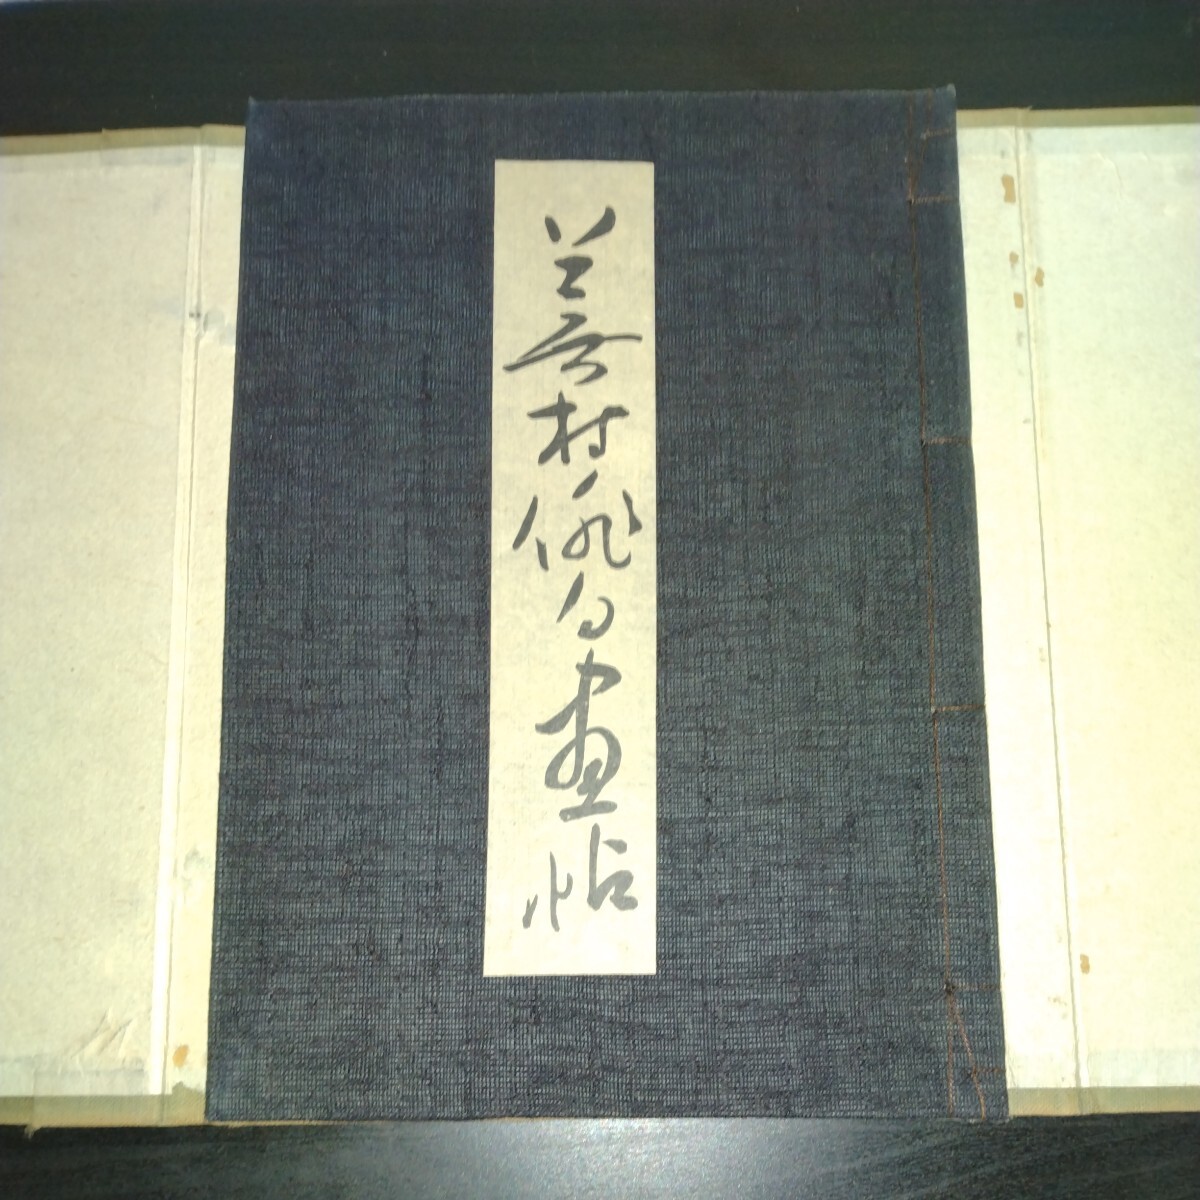 蕪村俳句画帖